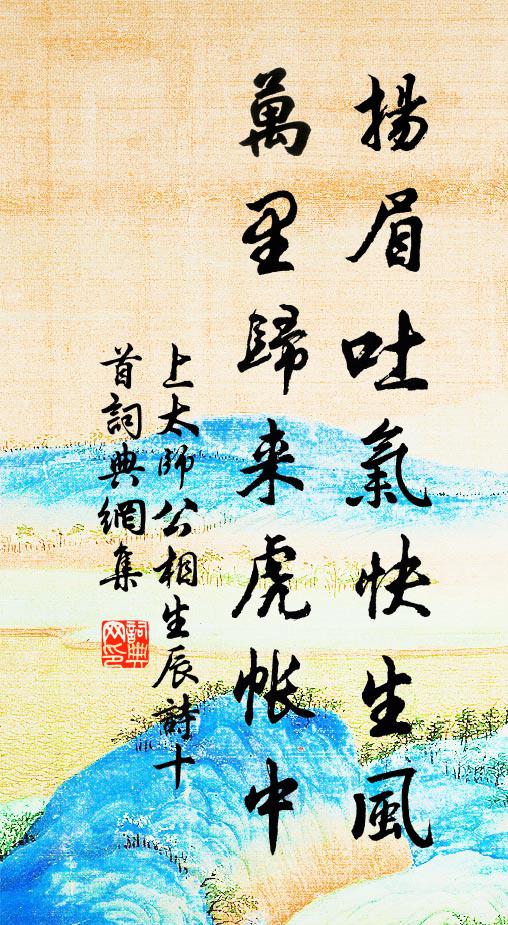 揚眉吐氣快生風
萬里歸来虎帳中
上太師公相生辰詩十
首詞典網集
詞典
网印